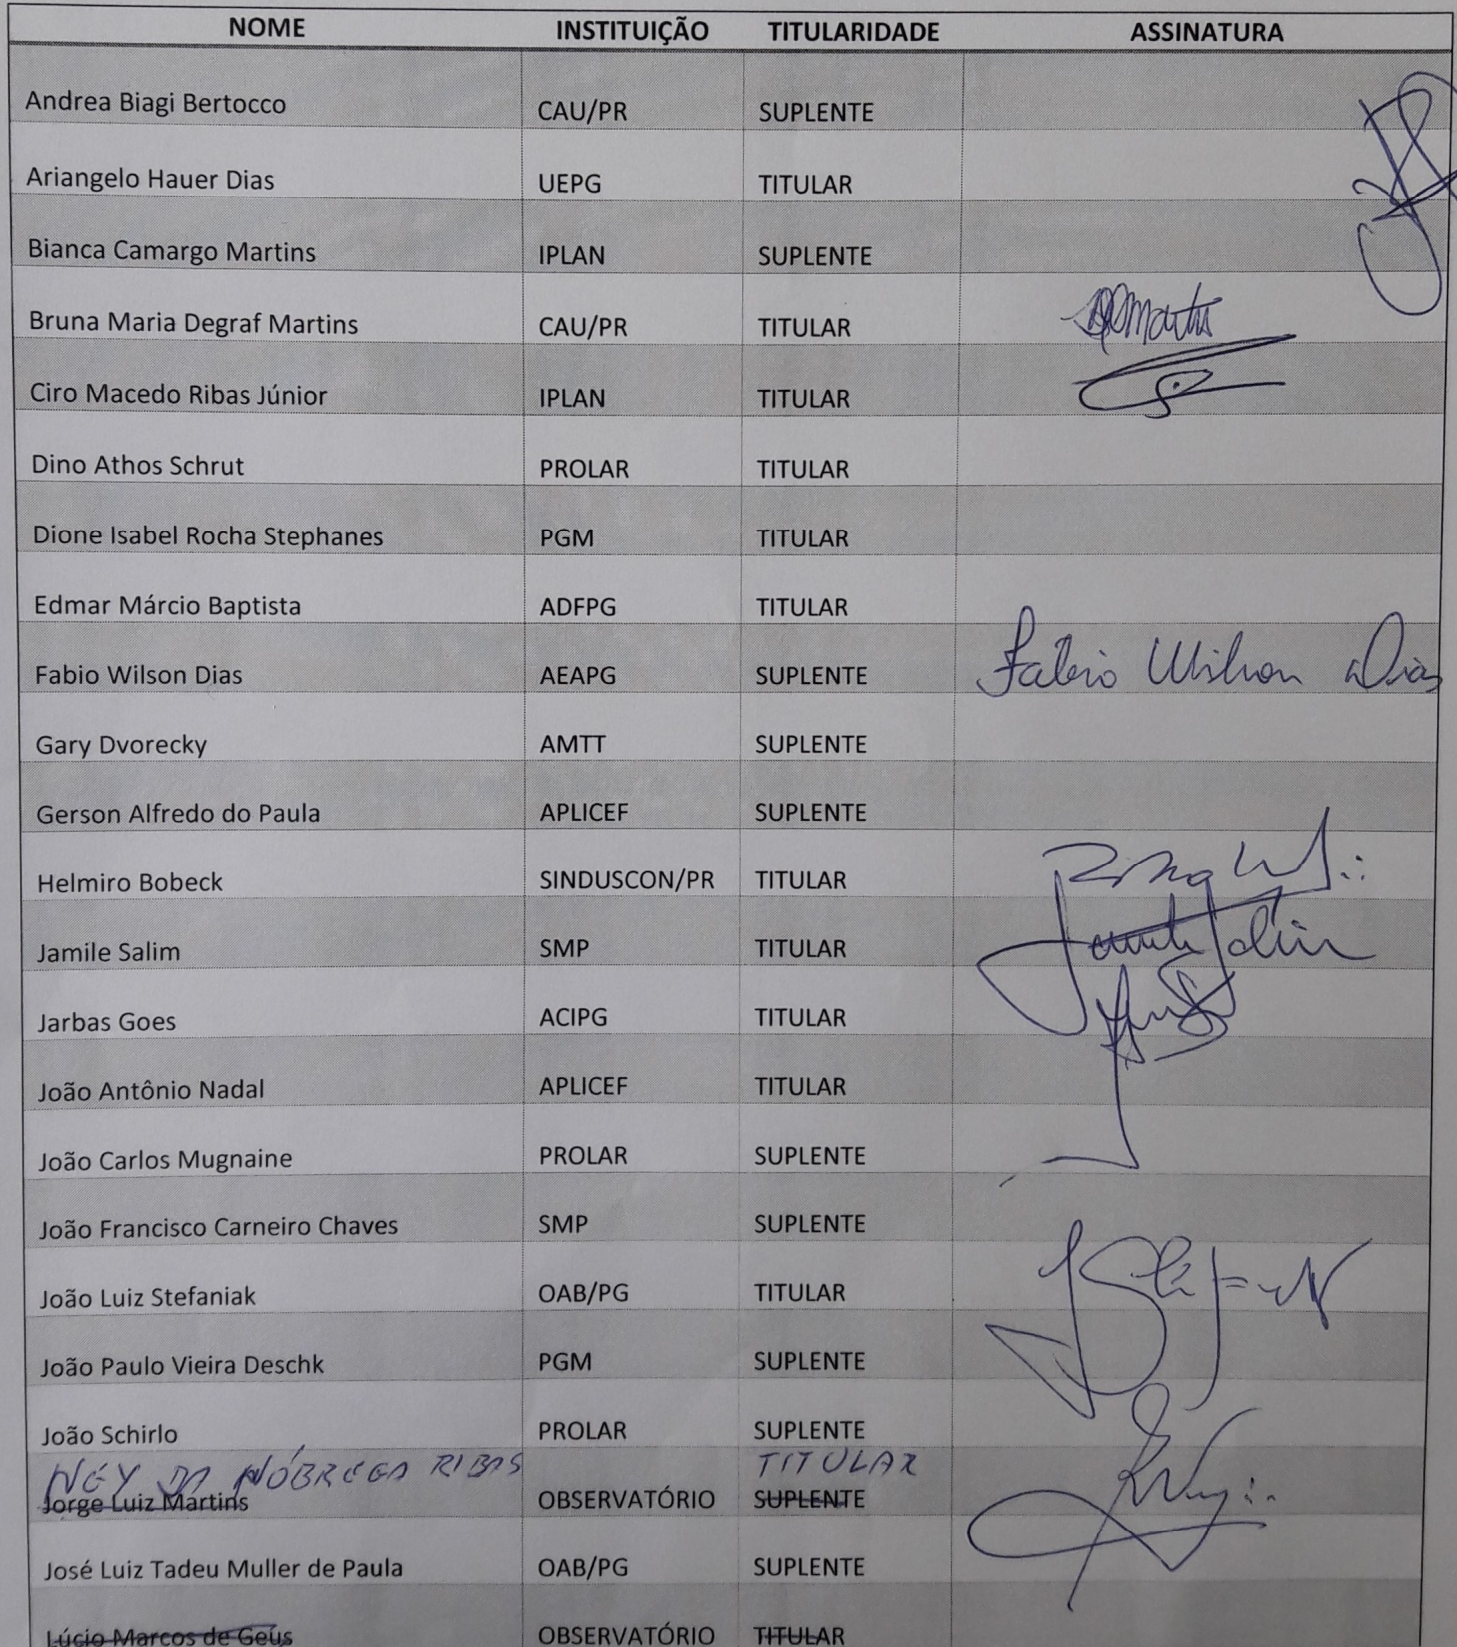 NOME INSTITUIÇÃO TITULARIDADE ASSINATURA
Andrea Biagi Bertocco CAU/PR SUPLENTE
Ariangelo Hauer Dias UEPG TITULAR
Bianca Camargo Martins IPLAN SUPLENTE
Bruna Maria Degraf Martins CAU/PR TITULAR
Ciro Macedo Ribas Júnior IPLAN TITULAR
Dino Athos Schrut PROLAR TITULAR
Dione Isabel Rocha Stephanes PGM TITULAR
Edmar Márcio Baptista ADFPG TITULAR
Fabio Wilson Dias AEAPG SUPLENTE Fabio Wilson Dias
Gary Dvorecky AMTT SUPLENTE
Gerson Alfredo do Paula APLICEF SUPLENTE
Helmiro Bobeck SINDUSCON/PR TITULAR
Jamile Salim SMP TITULAR
Jarbas Goes ACIPG TITULAR
João Antônio Nadal APLICEF TITULAR
João Carlos Mugnaine PROLAR SUPLENTE
João Francisco Carneiro Chaves SMP SUPLENTE
João Luiz Stefaniak OAB/PG TITULAR
João Paulo Vieira Deschk PGM SUPLENTE
João Schirlo PROLAR SUPLENTE
NEY DA NÓBREGA RIBAS TITULAR
Jorge Luiz Martins OBSERVATÓRIO SUPLENTE
José Luiz Tadeu Muller de Paula OAB/PG SUPLENTE
Lúcio Marcos de Geus OBSERVATÓRIO TITULAR